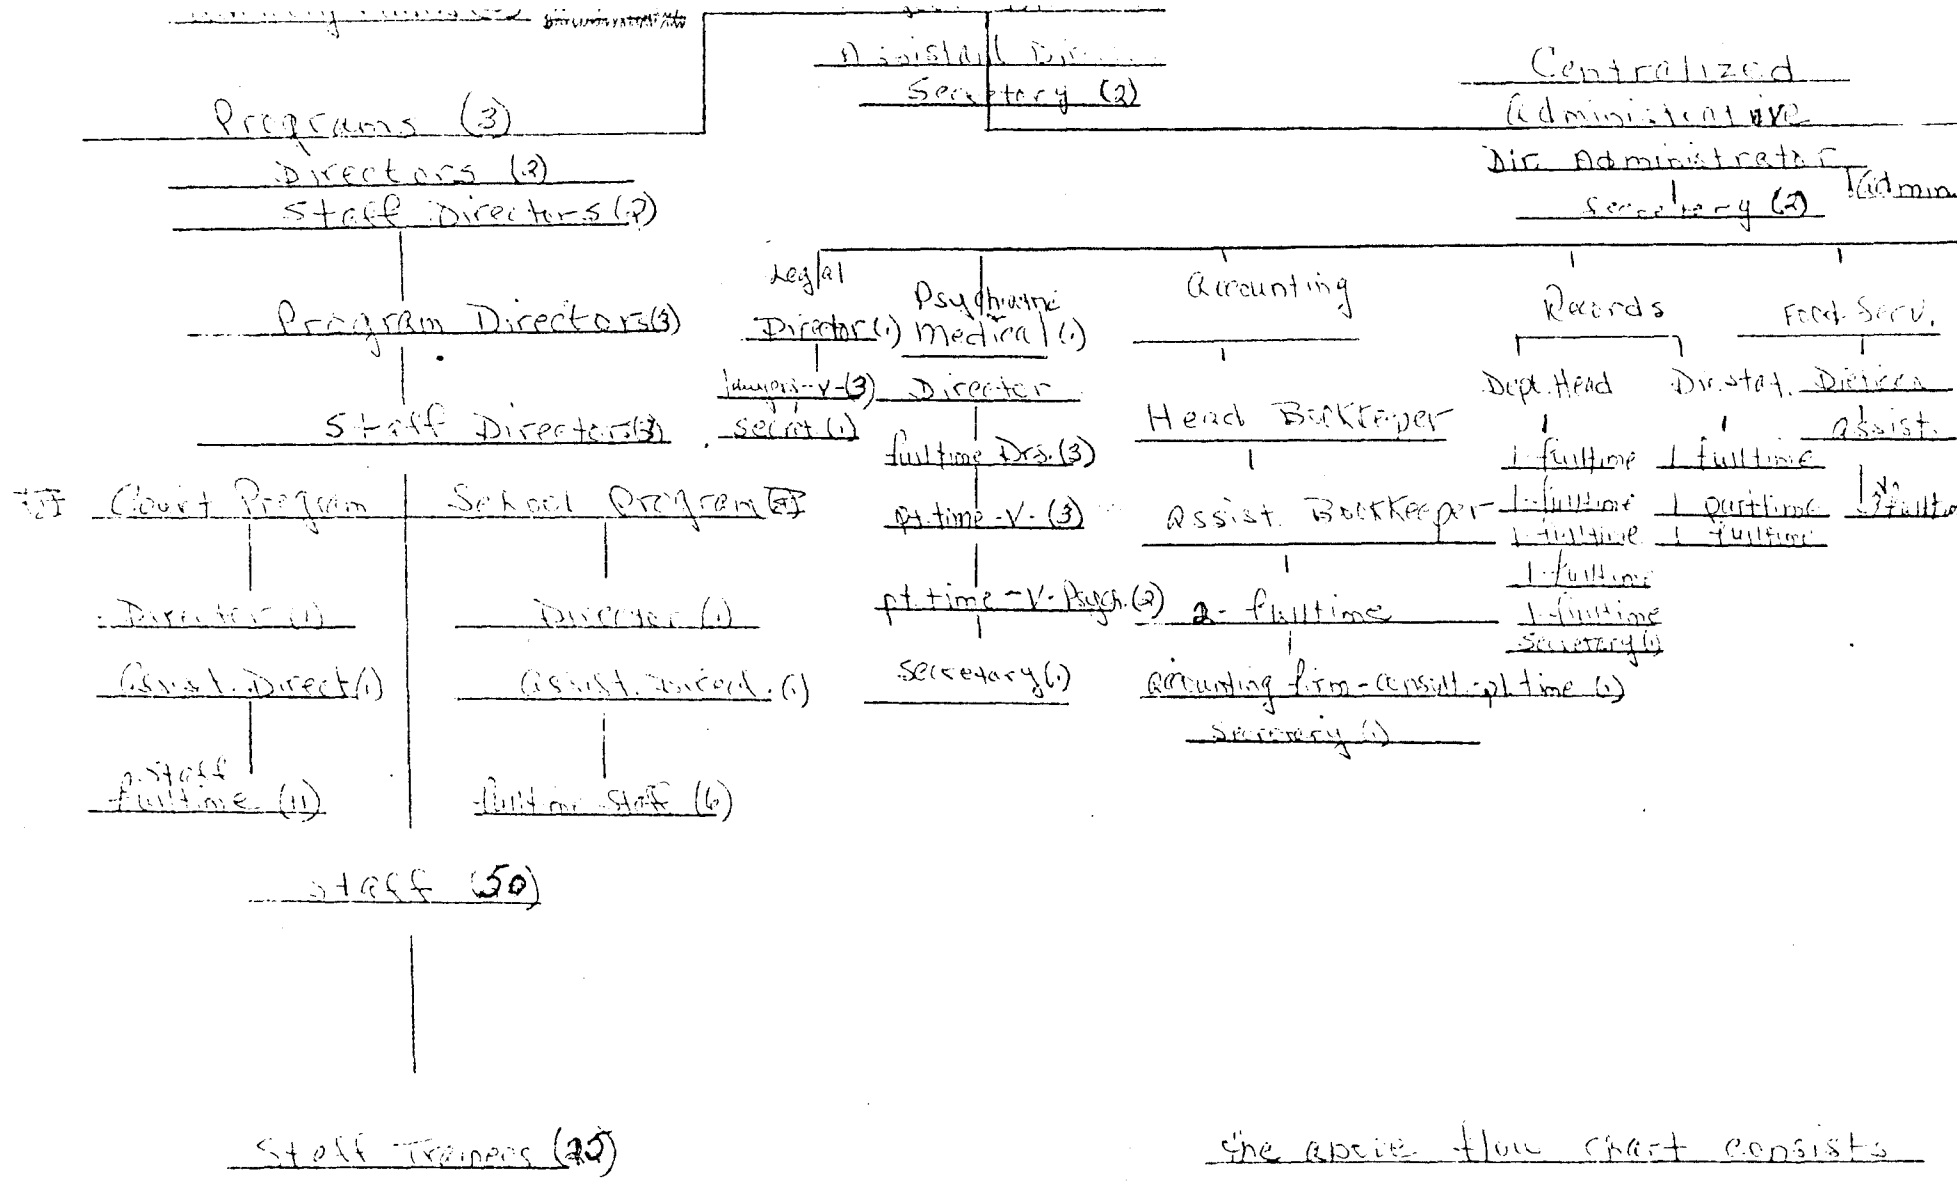 Secretary (2)
Centralized
administrative
Programs (3)
Directors (3)
Staff Directors (2)
Dir. Administrator
Secretary (2)
admin.
Program Directors (3)
Staff Directors (3)
Court Program
School Program
Director (1)
Director (1)
Assist. Direct (1)
Assist. Direct. (1)
Staff
fulltime (11)
fulltime Staff (6)
Staff (50)
Staff Trainees (25)
Legal
Director (1)
lawyers-V-(3)
Secret. (1)
Psychiatric
Medical (1)
Director
fulltime Drs. (3)
pt. time-V-(3)
pt. time-V-Psych. (2)
Secretary (1)
Accounting
Head Bookkeeper
Assist. Bookkeeper
2- fulltime
accounting firm-consult-pt time (1)
Secretary (1)
Records
Dept. Head
1-fulltime
1-fulltime
1-fulltime
1-fulltime
1-fulltime
Secretary (1)
Dir. Stat.
1 fulltime
1 parttime
1 fulltime
Food Serv.
assist.
the above flow chart consists